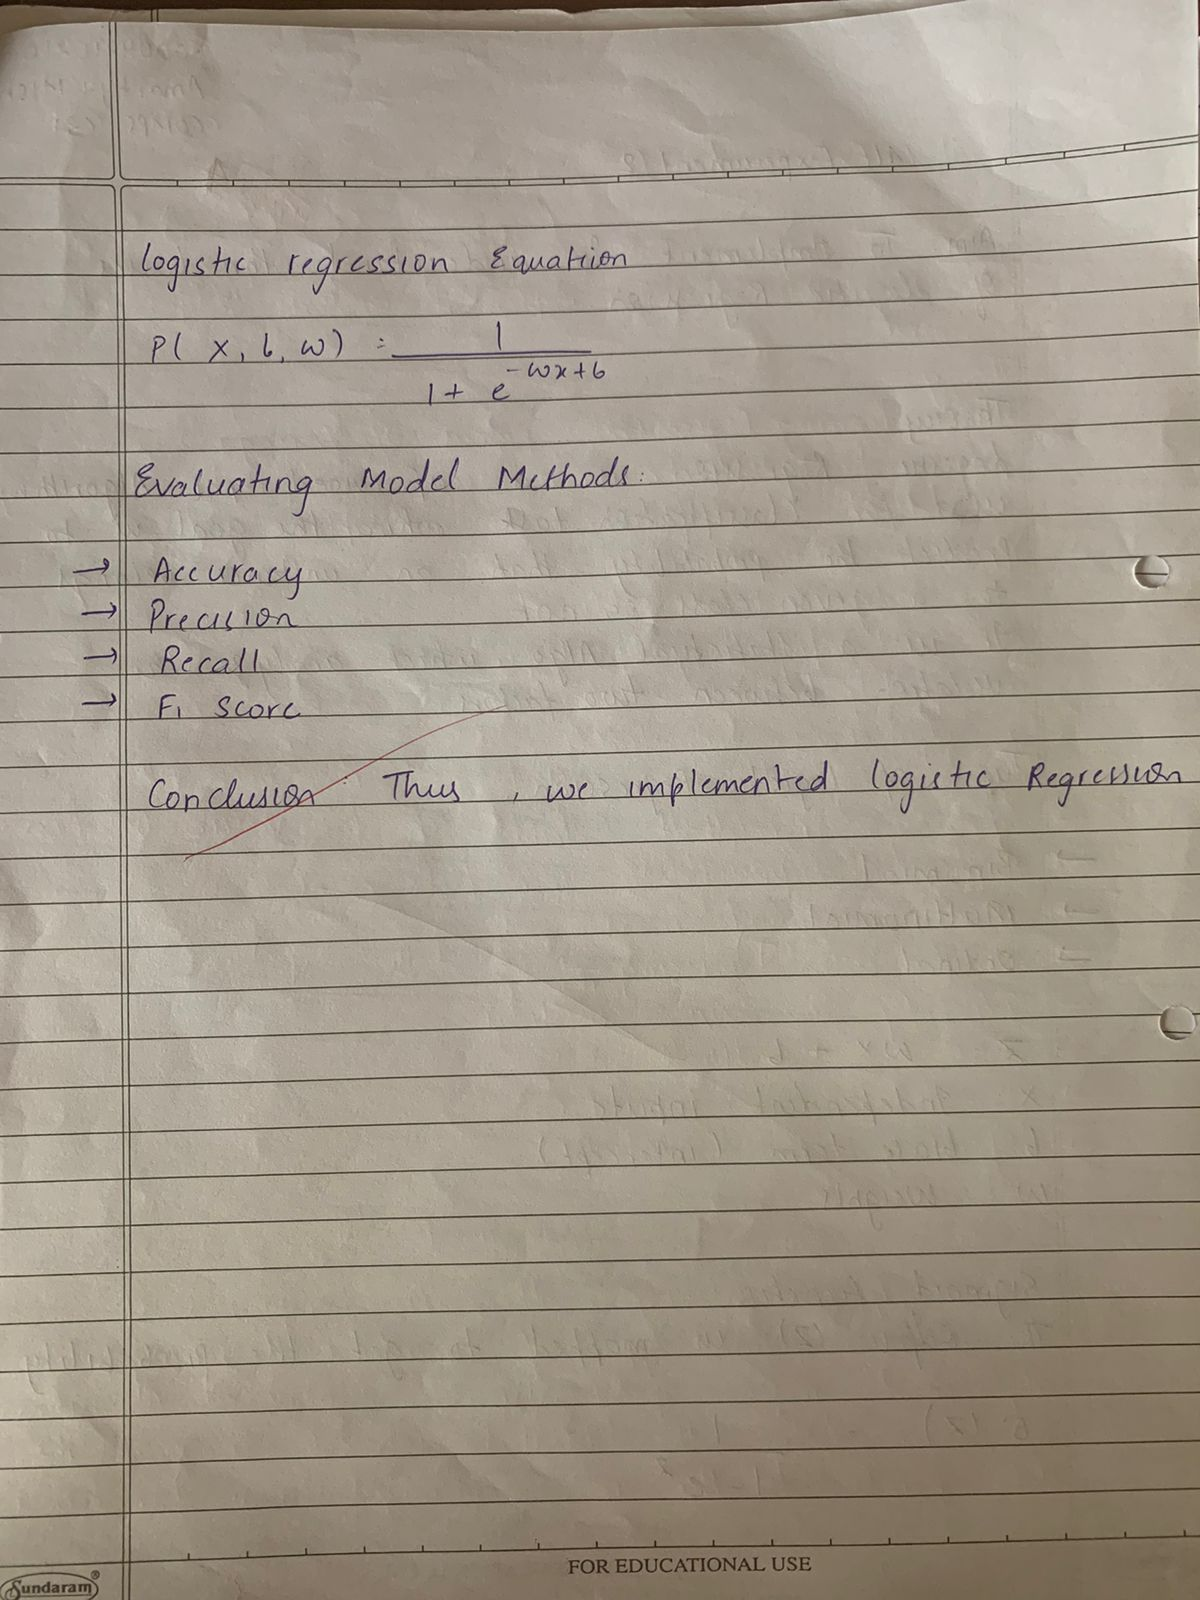 Logistic regression Equatiion
P( x, b, w) = 1
1 + e^-wx+b
Evaluating Model Methods:
→ Accuracy
→ Precision
→ Recall
→ F1 Score
Conclusion: Thus, we implemented logistic Regression
FOR EDUCATIONAL USE
Sundaram®